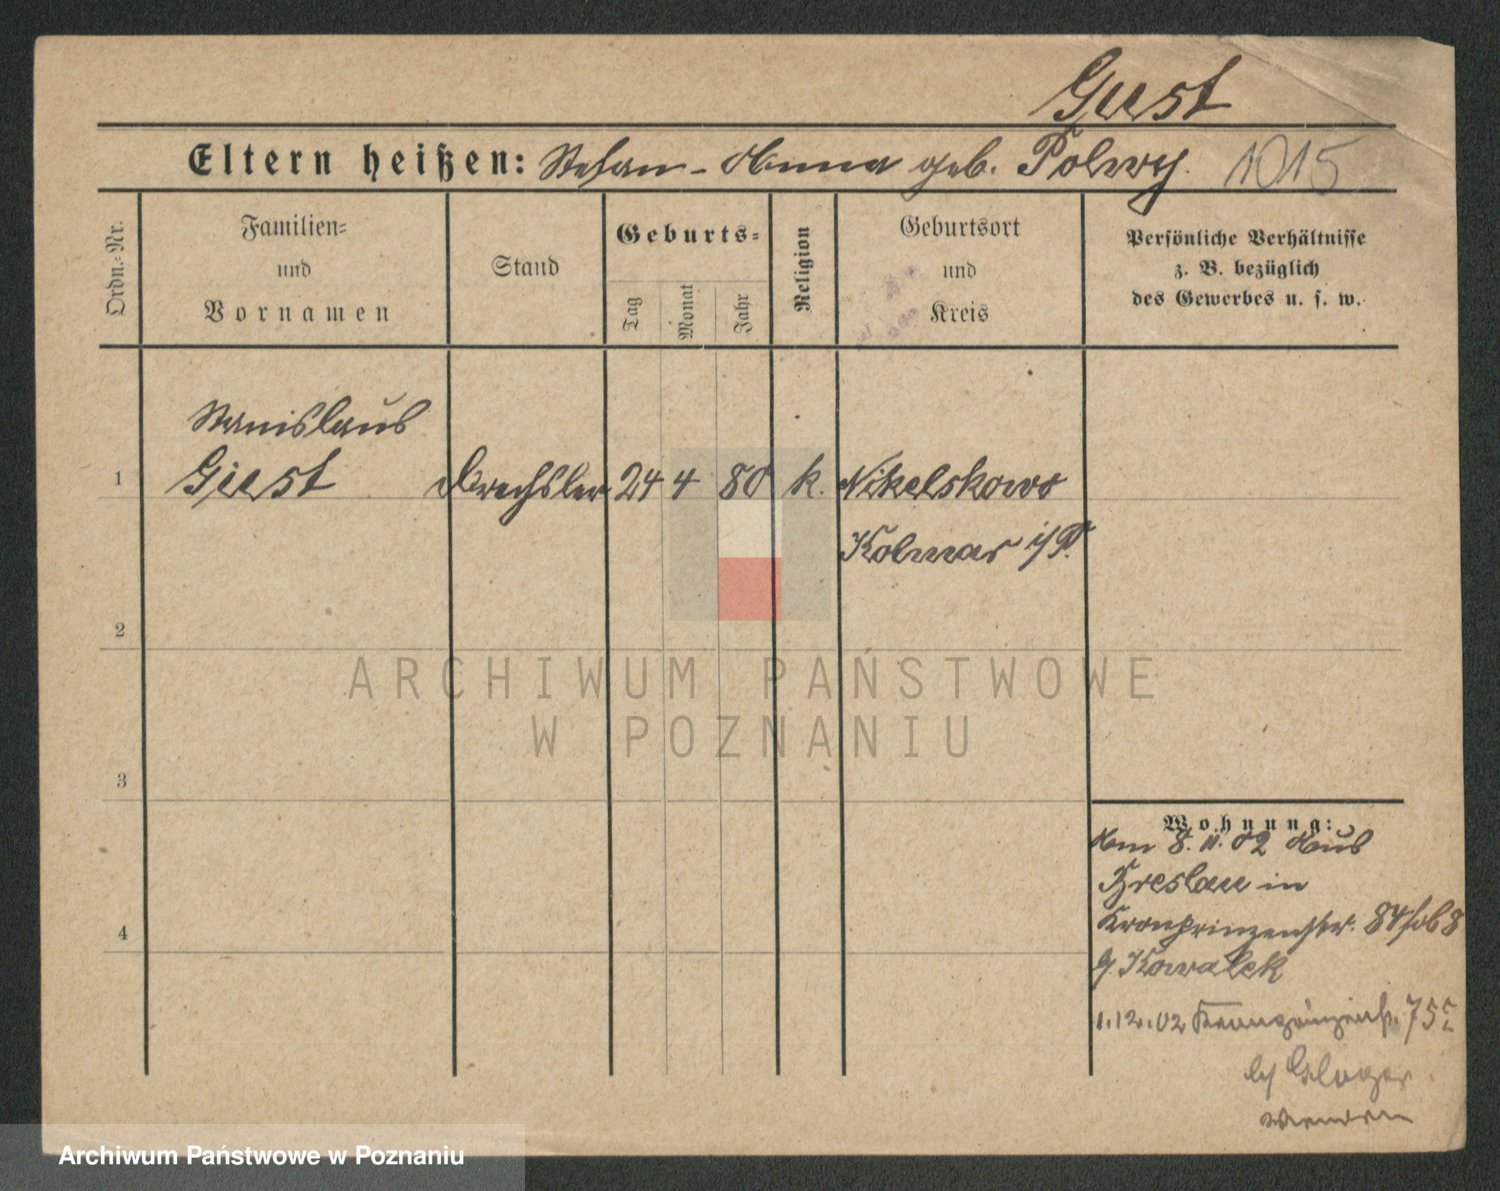 Giest
Eltern heißen: Stefan - Anna geb. Polwy. 1015
Ordn.-Nr.
Familien-
und
Vornamen
Stand
Geburts-
Tag
Monat
Jahr
Religion
Geburtsort
und
Kreis
Persönliche Verhältnisse
z. B. bezüglich
des Gewerbes u. s. w.
Stanislaus
1 Giest Drechsler 24 4 80 k. Nikelskowo
Kolmar i/P.
2
3
4
Wohnung:
Am 8. 11. 02 Aus
Breslau in
Kronprinzenstr. 84
Kowalek
1.12.02 Kronprinzenstr. 75
by Gloger
ARCHIWUM PAŃSTWOWE
W POZNANIU
Archiwum Państwowe w Poznaniu